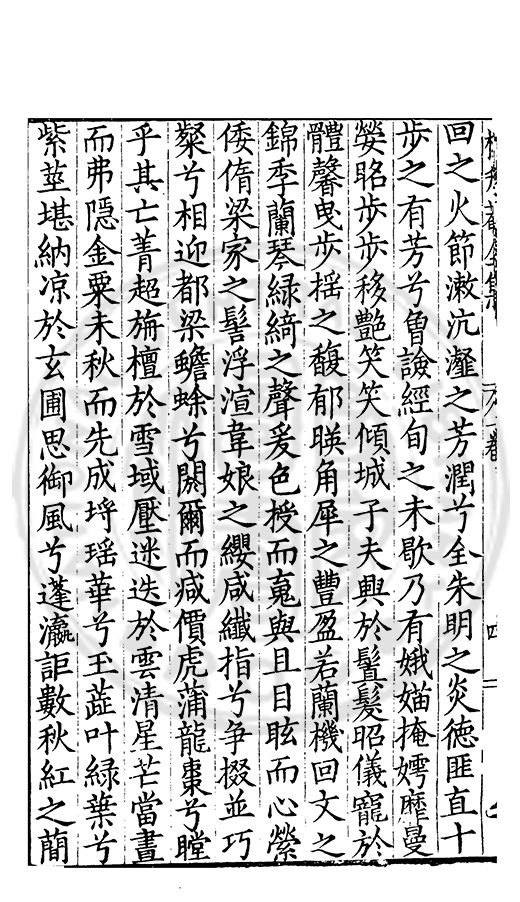 回之火節漱沆瀣之芳潤兮全朱明之炎德匪直十
步之有芳兮曾諓經旬之未歇乃有娥媌掩嫮靡曼
嫈眳步步移艷笑笑傾城子夫興於鬒髮昭儀寵於
體馨曳步揺之馥郁暎角犀之豐盈若蘭機回文之
錦季蘭琴緑綺之聲爰色授而䰟與且目眩而心縈
倭傏梁家之髻浮渲韋娘之纓咸纖指兮争掇並巧
粲兮相迎都梁蟾蜍兮闕爾而减價虎蒲龍棗兮瞠
乎其亡菁超旃檀於雪域壓迷迭於雲清星芒當晝
而弗隱金粟未秋而先成埓瑶華兮玉蕋叶緑葉兮
紫莖堪納凉於玄圃思御風兮蓬瀛詎數秋紅之蕳
四